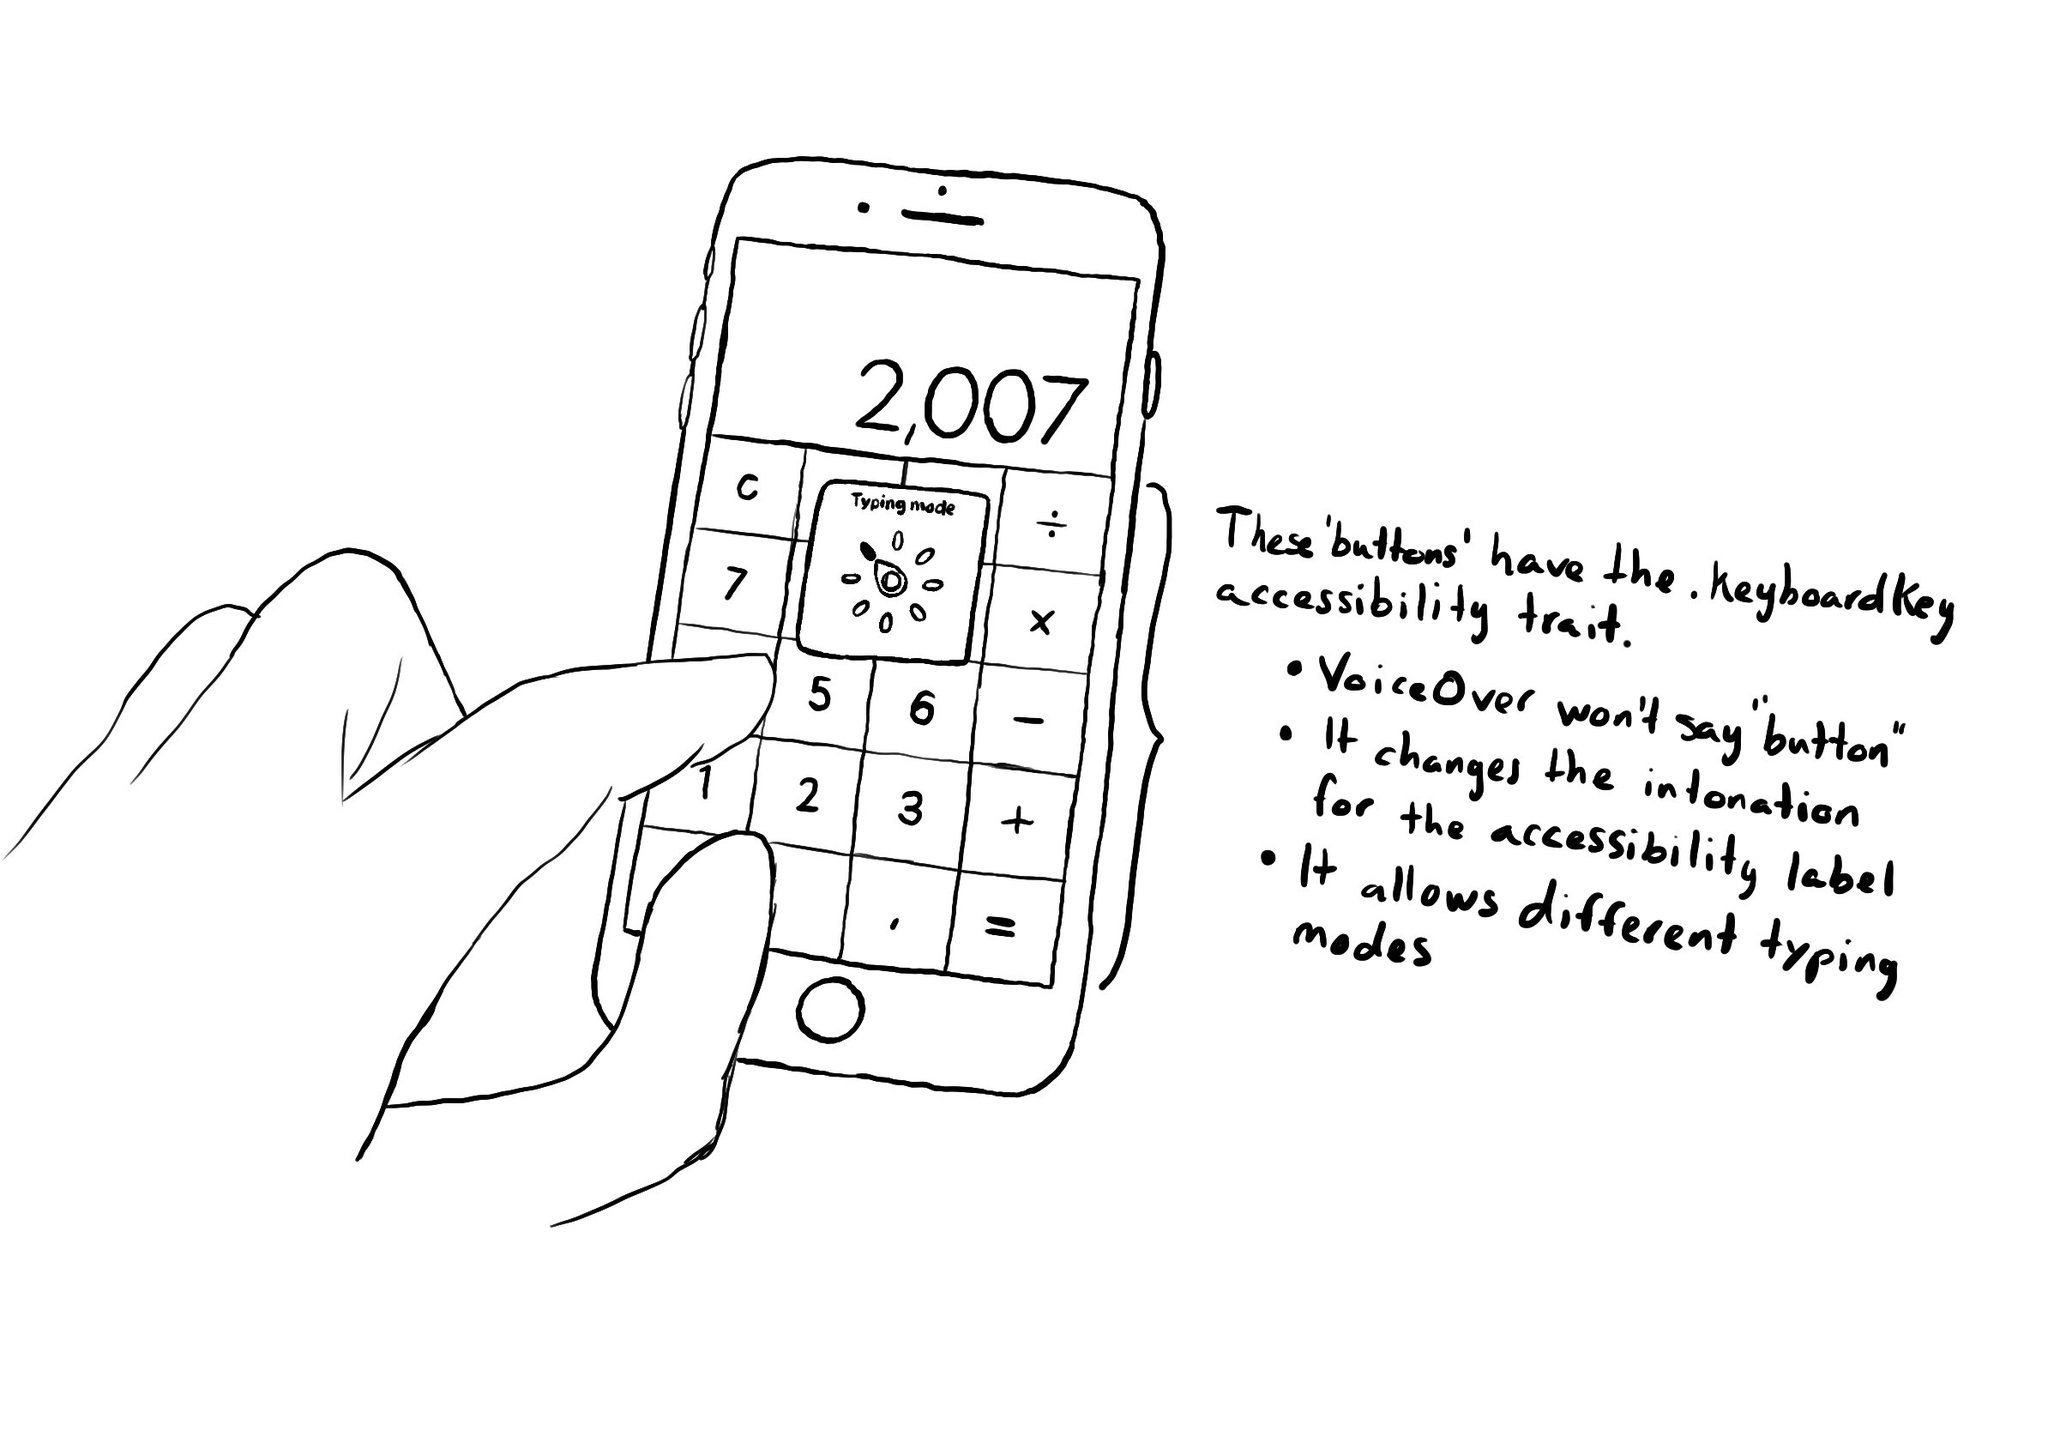 2,007
C ÷
Typing mode
7 x
5 6 −
1 2 3 +
, =
These 'buttons' have the .keyboardKey
accessibility trait.
• VoiceOver won't say "button"
• It changes the intonation
for the accessibility label
• It allows different typing
modes